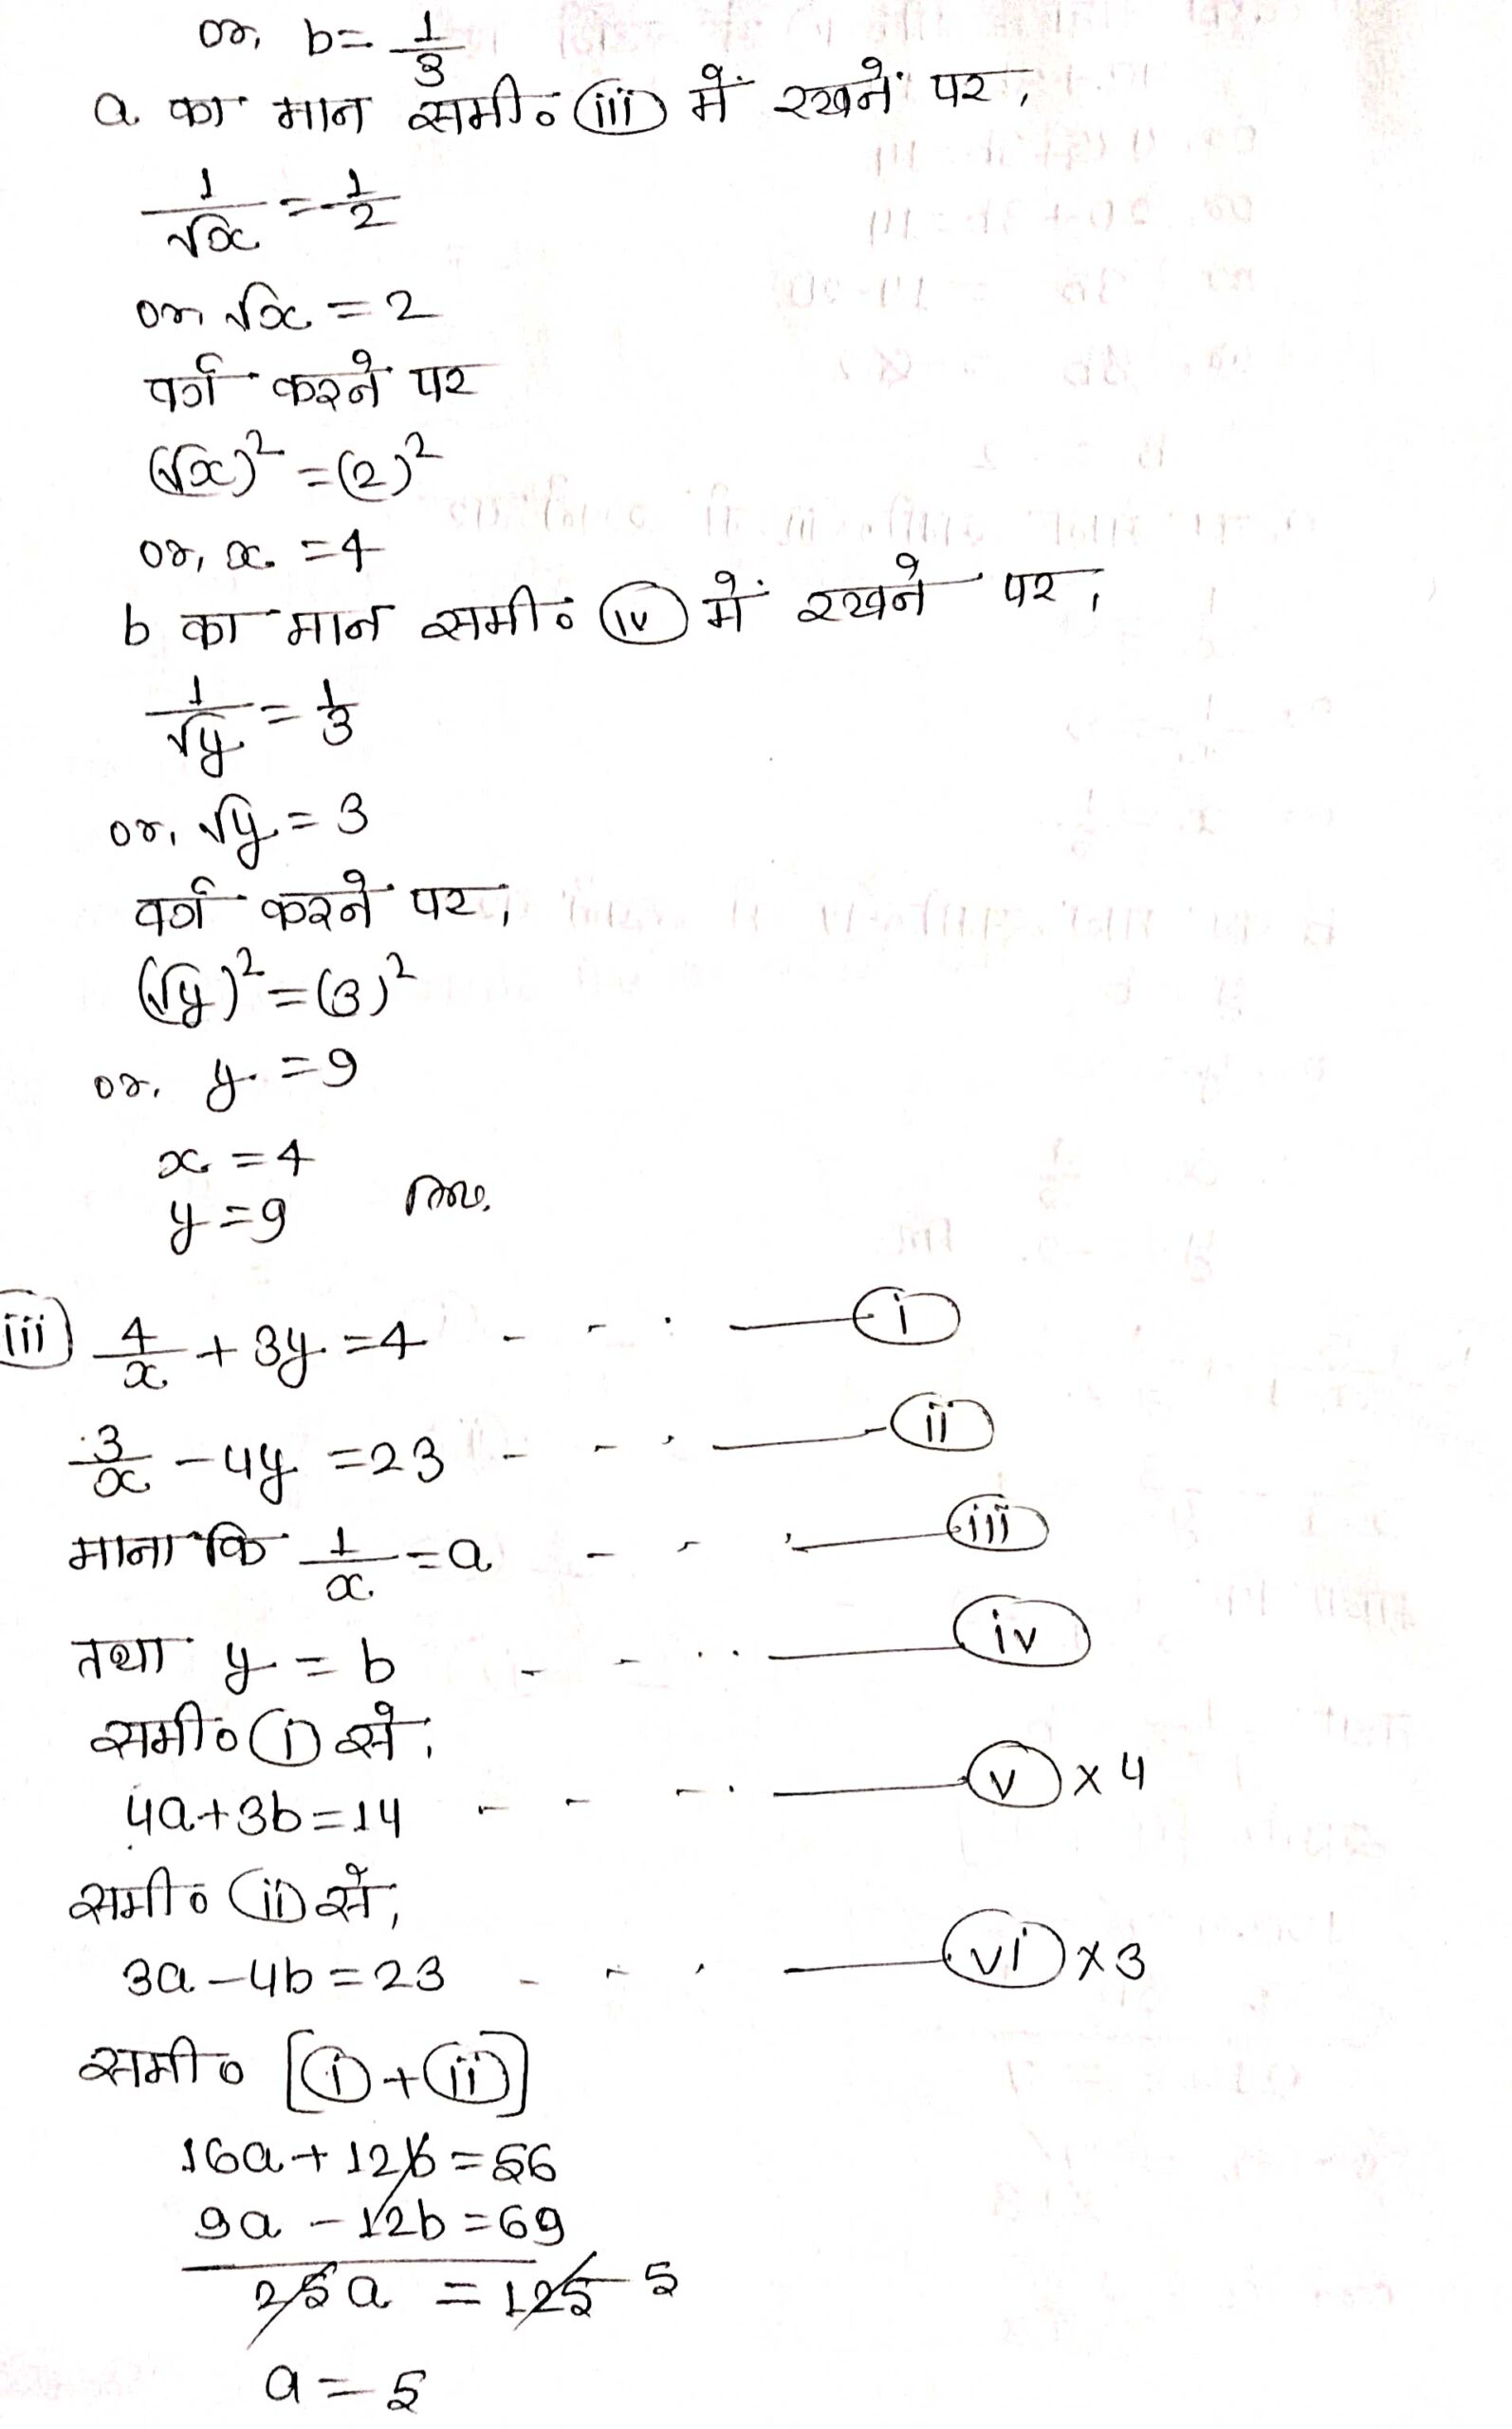 or, b = 1/3
a का मान समी० (iii) में रखने पर,
1/√x = 1/2
or √x = 2
वर्ग करने पर
(√x)² = (2)²
or, x = 4
b का मान समी० (iv) में रखने पर,
1/√y = 1/3
or, √y = 3
वर्ग करने पर,
(√y)² = (3)²
or, y = 9
x = 4
y = 9 Ans.
(iii) 4/x + 3y = 4 - - · — (i)
3/x - 4y = 23 - - · — (ii)
माना कि 1/x = a - - · — (iii)
तथा y = b - - ·· — (iv)
समी० (i) से,
4a + 3b = 14 - - - · — (v) × 4
समी० (ii) से,
3a - 4b = 23 - - · — (vi) × 3
समी० [(i) + (ii)]
16a + 12b = 56
9a - 12b = 69
25a = 125 5
a = 5